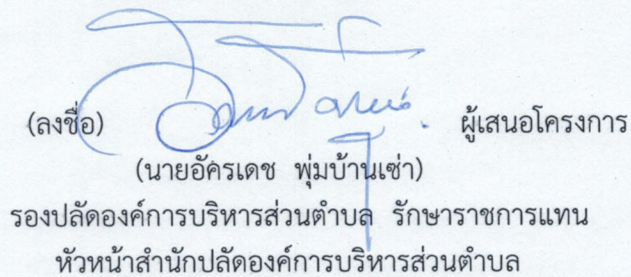 (ลงชื่อ) ผู้เสนอโครงการ
(นายอัครเดช พุ่มบ้านเซ่า)
รองปลัดองค์การบริหารส่วนตำบล รักษาราชการแทน
หัวหน้าสำนักปลัดองค์การบริหารส่วนตำบล